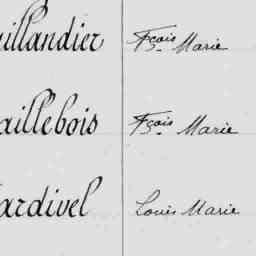 uillandier Fçois Marie
aillebois Fçois Marie
ardivel Louis Marie